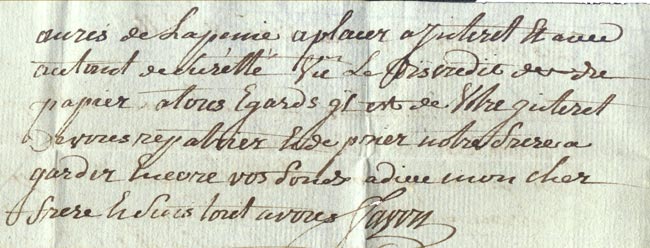 auries de la peine a placer a jnteret Et avec
autant de sûrétté Vu Le Discredit de
papier a tous Egards jl est de Votre jnteret
De vous rapatrier Et de prier notre frere a
garder Encore vos fonds adieu mon cher
frere Je suis tout a vous Fayon